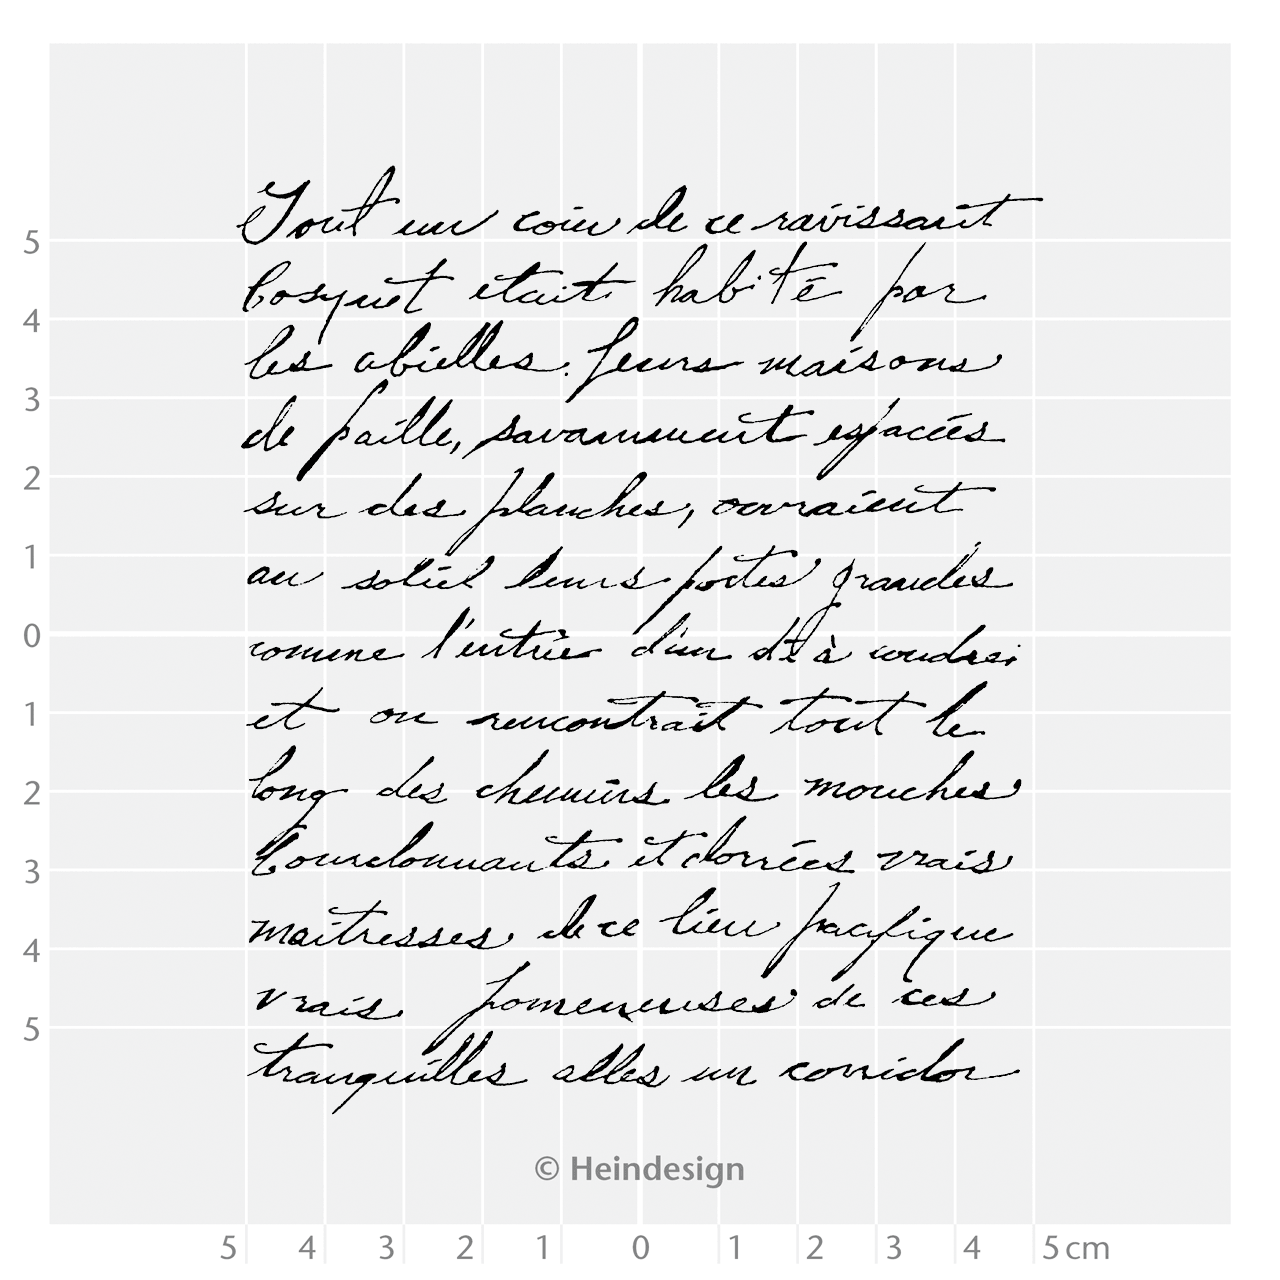 Tout un coin de ce ravissant
bosquet etait habité par
les abielles. Leurs maisons
de paille, savamment espacées
sur des planches, ouvraient
au soliel leurs portes grandes
comme l'entrée d'un dé à coudre;
et on rencontrait tout le
long des chemins les mouches
bourdonnants et dorrées vrais
maitresses de ce lieu pacifique
vrais de ces
tranquilles alles un corridor
© Heindesign
5
4
3
2
1
0
1
2
3
4
5
5 4 3 2 1 0 1 2 3 4 5 cm